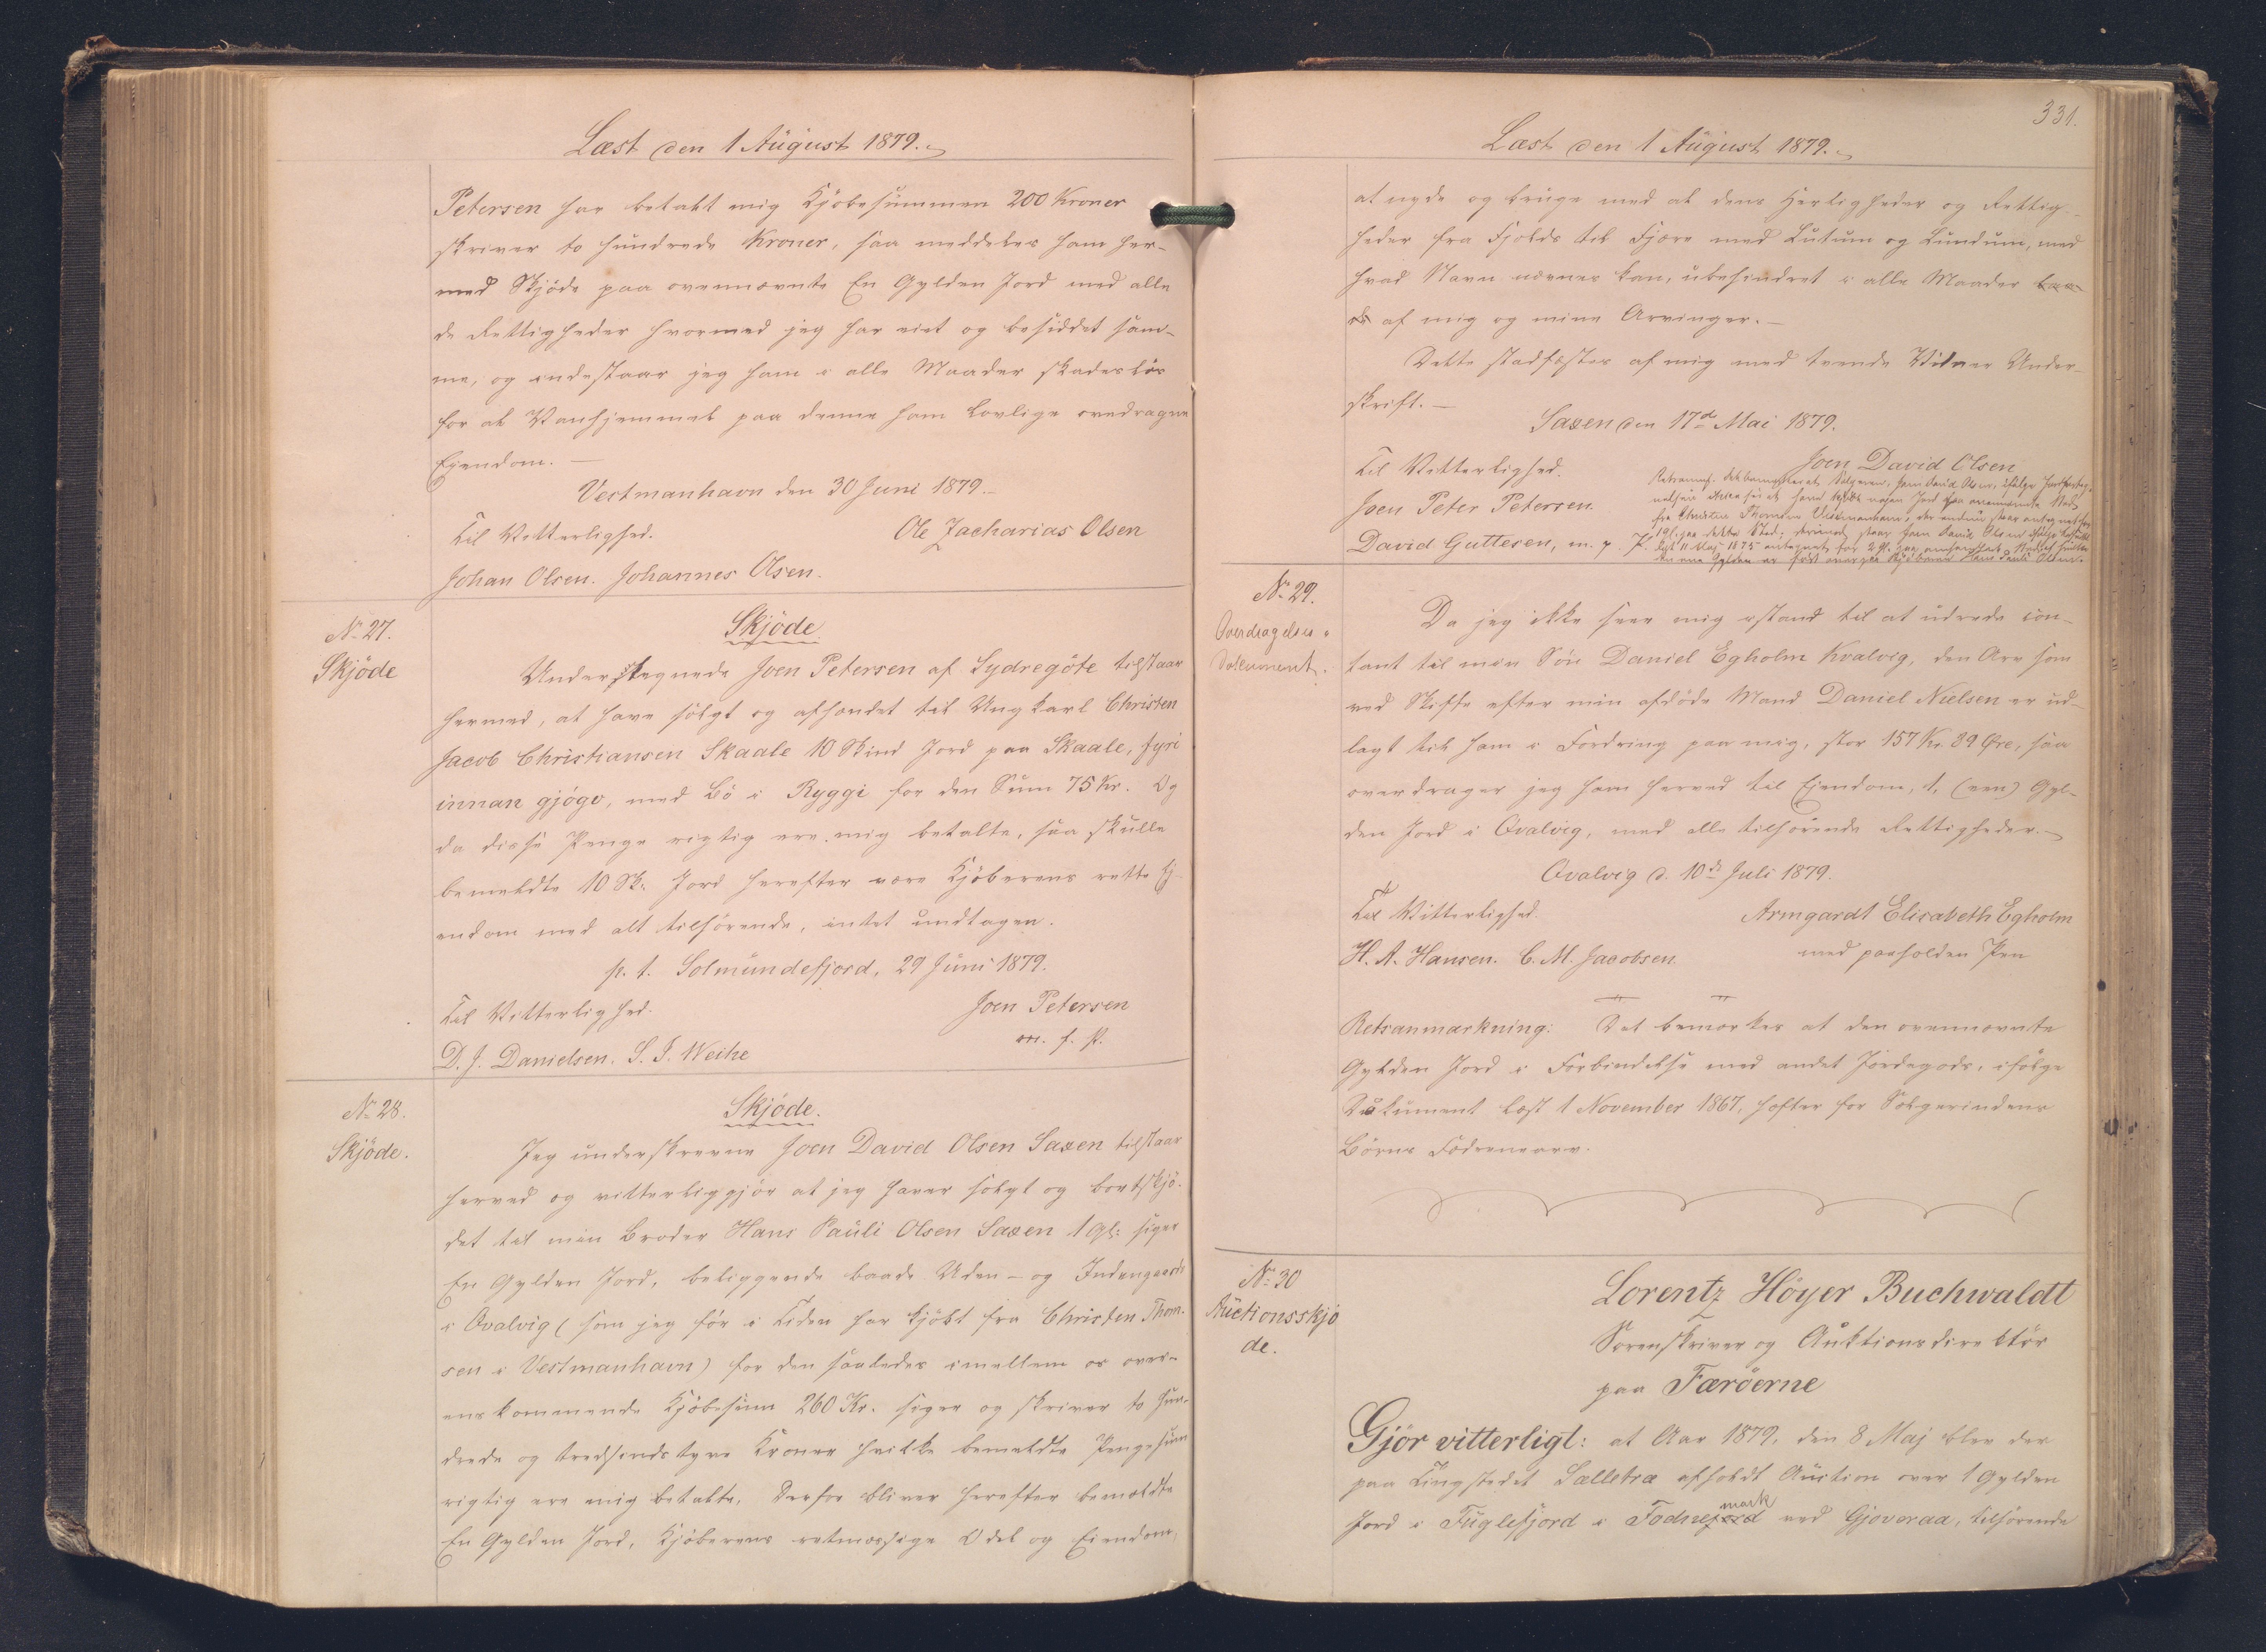 Læst den 1 August 1879.
Petersen har betalt mig Kjøbesummen 200 Kroner
skriver to hundrede Kroner, saa meddeles ham her-
med Skjöde paa ovennævnte En Gylden Jord med alle
de Rettigheder hvormed jeg har eiet og besiddet sam-
me, og indestaar jeg ham i alle Maader skadeslös
for al Vanhjemmel paa denne ham lovlige overdragne
Ejendom. —
Vestmanhavn den 30 Juni 1879.
Til Vitterlighed.
Ole Zacharias Olsen
Johan Olsen. Johannes Olsen.
No 27.
Skjöde
Skjöde
Undertegnede Joen Petersen af Sydregöte tilstaar
hermed, at have solgt og afhændet til Ungkarl Christen
Jacob Christiansen Skaale 10 Skind Jord paa Skaale, fyri
innan gjógv, med Bö i Ryggi for den Sum 75 Kr. Og
da disse Penge rigtig ere mig betalte, saa skulle
bemeldte 10 Sk: Jord herefter være Kjöberens rette Ej-
endom med alt tilhörende, intet undtagen.
p. t. Solmundefjord, 29 Juni 1879.
Til Vitterlighed.
Joen Petersen
m. f. P.
D. J. Danielsen. S. J. Weihe
No 28.
Skjöde.
Skjöde.
Jeg underskrevne Joen David Olsen Saxen tilstaar
herved og vitterliggjör at jeg haver solgt og bortskjö-
det til min Broder Hans Pauli Olsen Saxen 1 Gl: siger
En Gylden Jord, beliggende baade Uden- og Indengaards
i Qvalvig (som jeg för i Tiden har kjöbt fra Christen Thom-
sen i Vestmanhavn) for den saaledes imellem os over-
enskommende Kjöbesum 260 Kr. siger og skriver to hun-
drede og tredsindstyve Kroner hvilke bemeldte Pengesum
rigtig ere mig betalte. Derfor bliver herefter bemældte
En Gylden Jord, Kjöberens retmæssige Odel og Eiendom,
331.
Læst den 1 August 1879.
at nyde og bruge med al dens Herligheder og Rettig-
heder fra Fjelds til Fjære med Lutum og Lundum, med
hvad Navn nævnes kan, ubehindret i alle Maader baa-
de af mig og mine Arvinger. —
Dette stadfæstes af mig med tvende Vidner Under-
skrift. —
Saxen den 17d Mai 1879.
Til Vitterlighed.
Joen David Olsen
Joen Peter Petersen.
David Guttesen, m. p. P.
No 29.
Overdragelses-
Dokument.
Da jeg ikke seer mig istand til at udrede con-
tant til min Sön Daniel Egholm Kvalvig, den Arv som
ved Skifte efter min afdöde Mand Daniel Nielsen er ud-
lagt til ham i Fordring paa mig, stor 157 Kr. 89 Øre, saa
overdrager jeg ham herved til Ejendom, 1, (een) Gyl-
den Jord i Qvalvig, med alle tilhörende Rettigheder.
Qvalvig d. 10de Juli 1879.
Til Vitterlighed.
Armgardt Elisabeth Egholm
H. A. Hansen. C. M. Jacobsen.
med paaholden Pen
Retsanmærkning: Det bemærkes at den ovennævnte
Gylden Jord i Forbindelse med andet Jordegods, ifölge
Dokument læst 1 November 1867, hæfter for Sælgerindens
Börns Fædrenearv.
No 30
Auctionsskjö
de.
Lorentz Höyer Buchwaldt
Sorenskriver og Auktionsdirektör
paa Færöerne
Gjör vitterligt: at Aar 1879, den 8 Maj blev der
paa Tingstedet Sælletræ afholdt Auction over 1 Gylden
mark
Jord i Fuglefjord i Todnejord ved Gjoveraa, tilhörende